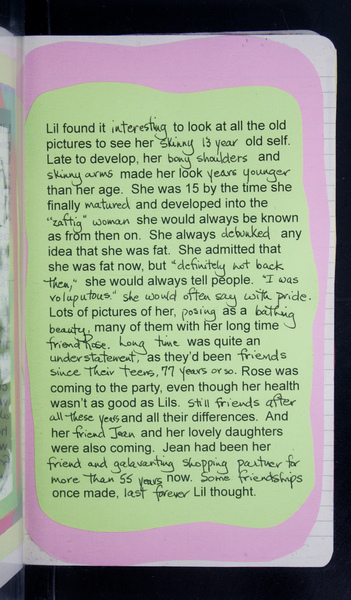 Lil found it interesting to look at all the old
pictures to see her skinny 13 year old self.
Late to develop, her bony shoulders and
skinny arms made her look years younger
than her age. She was 15 by the time she
finally matured and developed into the
"zaftig" woman she would always be known
as from then on. She always debunked any
idea that she was fat. She admitted that
she was fat now, but "definitely not back
then," she would always tell people. "I was
voluputous." she would often say with pride.
Lots of pictures of her, posing as a bathing
beauty, many of them with her long time
friend Rose. Long time was quite an
understatement, as they'd been friends
since their teens, 77 years or so. Rose was
coming to the party, even though her health
wasn't as good as Lils. Still friends after
all these years and all their differences. And
her friend Jean and her lovely daughters
were also coming. Jean had been her
friend and galavanting shopping partner for
more than 55 years now. Some friendships
once made, last forever Lil thought.